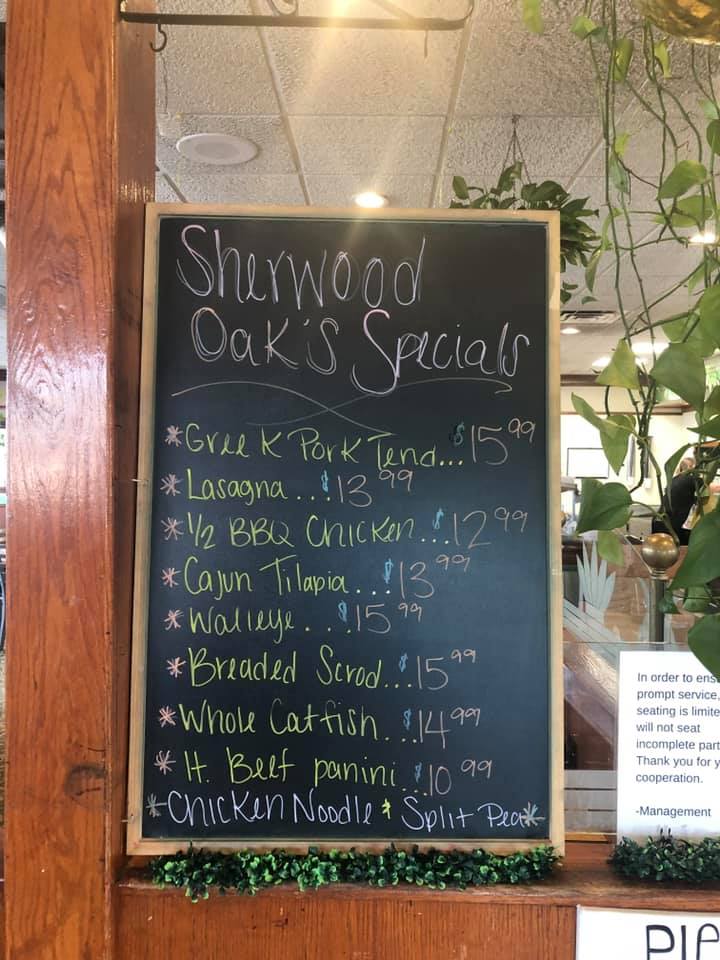 Sherwood
Oak's Specials
*Greek Pork Tend...$15.99
*Lasagna...$13.99
*1/2 BBQ Chicken...$12.99
*Cajun Tilapia...$13.99
*Walleye...$15.99
*Breaded Scrod...$15.99
*Whole Catfish...$14.99
*It. Beef panini...$10.99
*Chicken Noodle & Split Pea*
In order to ens
prompt service,
seating is limite
will not seat
incomplete part
Thank you for y
cooperation.
-Management